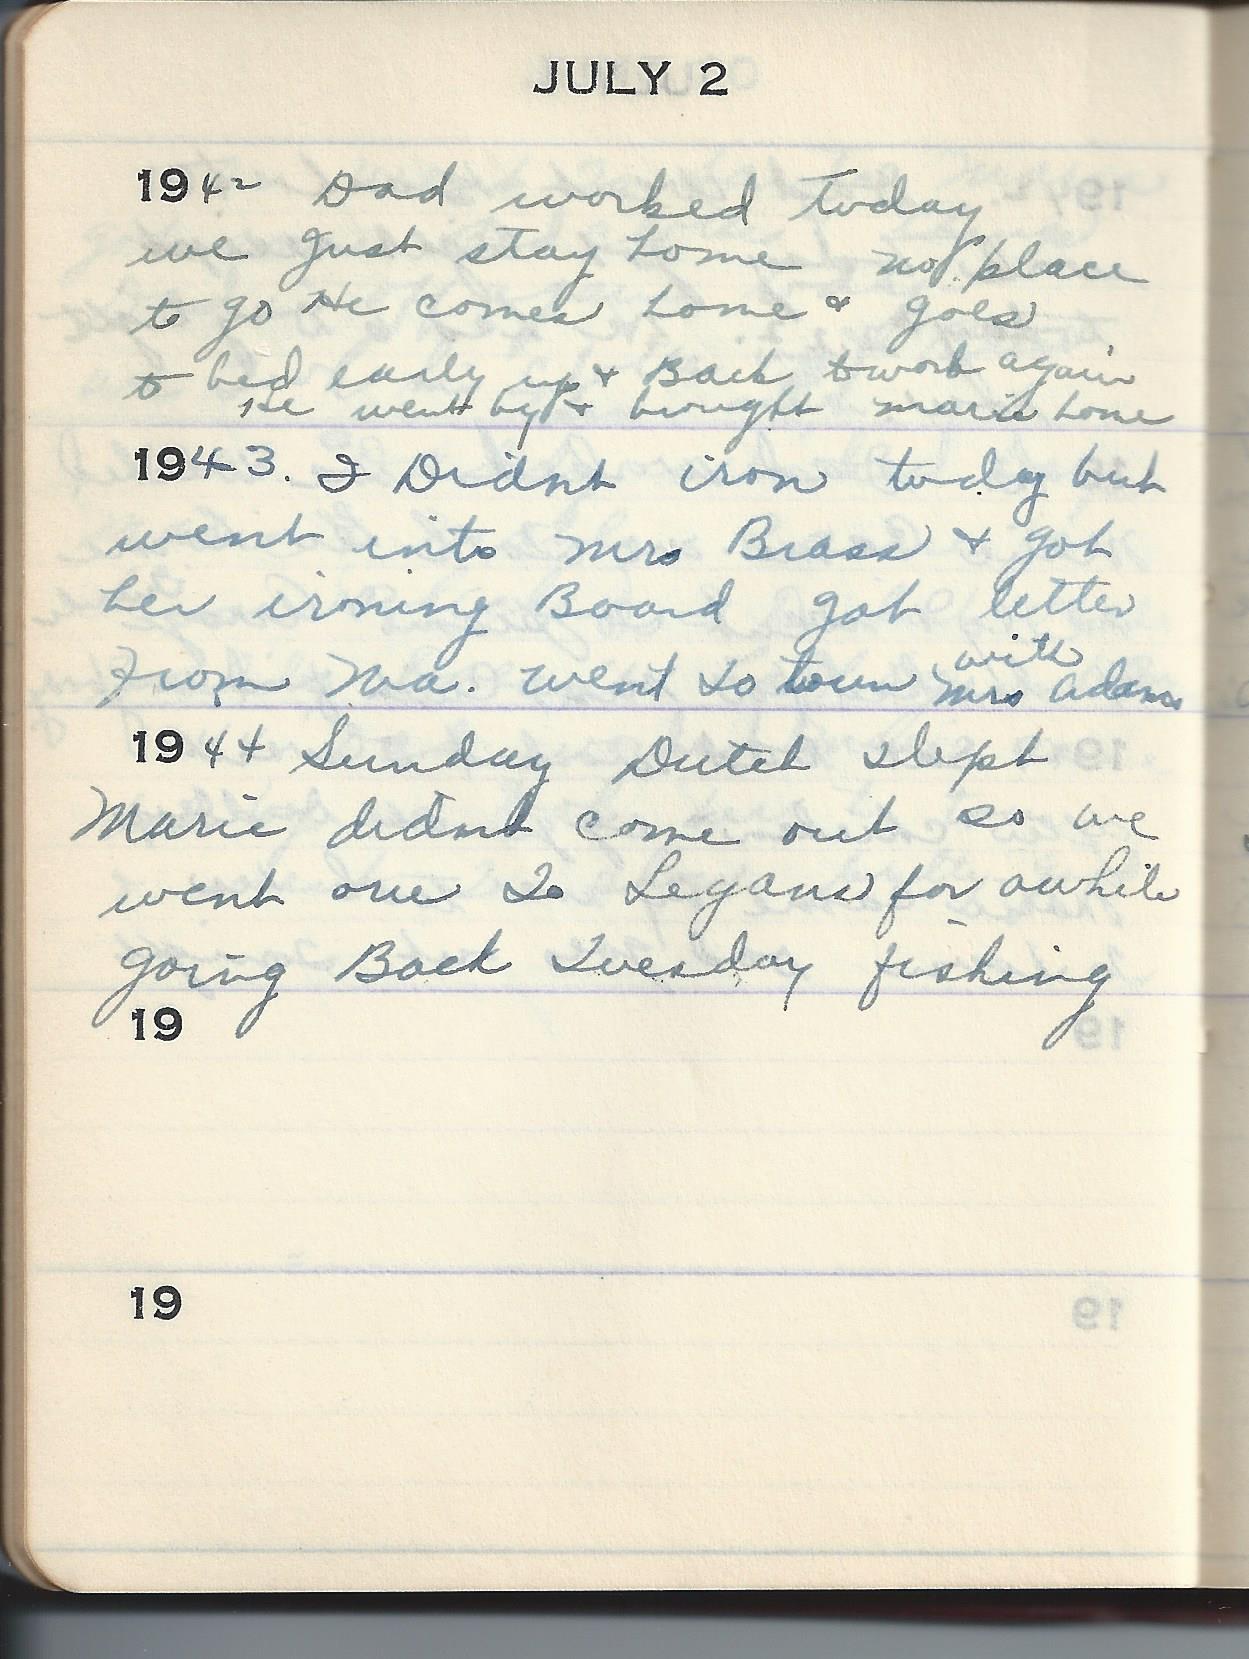 JULY 2
1942 Dad worked today
we just stay home no place
to go He comes home & goes
to bed early up & Back to work again
He went by & brought marie home
1943. I Didnt iron today but
went into mrs Brass & got
her ironing Board got letter
From Ma. went to town with mrs adams
1944 Sunday Dutch slept
Marie didnt come out so we
went over to Legans for awhile
going Back Tuesday fishing
19
19